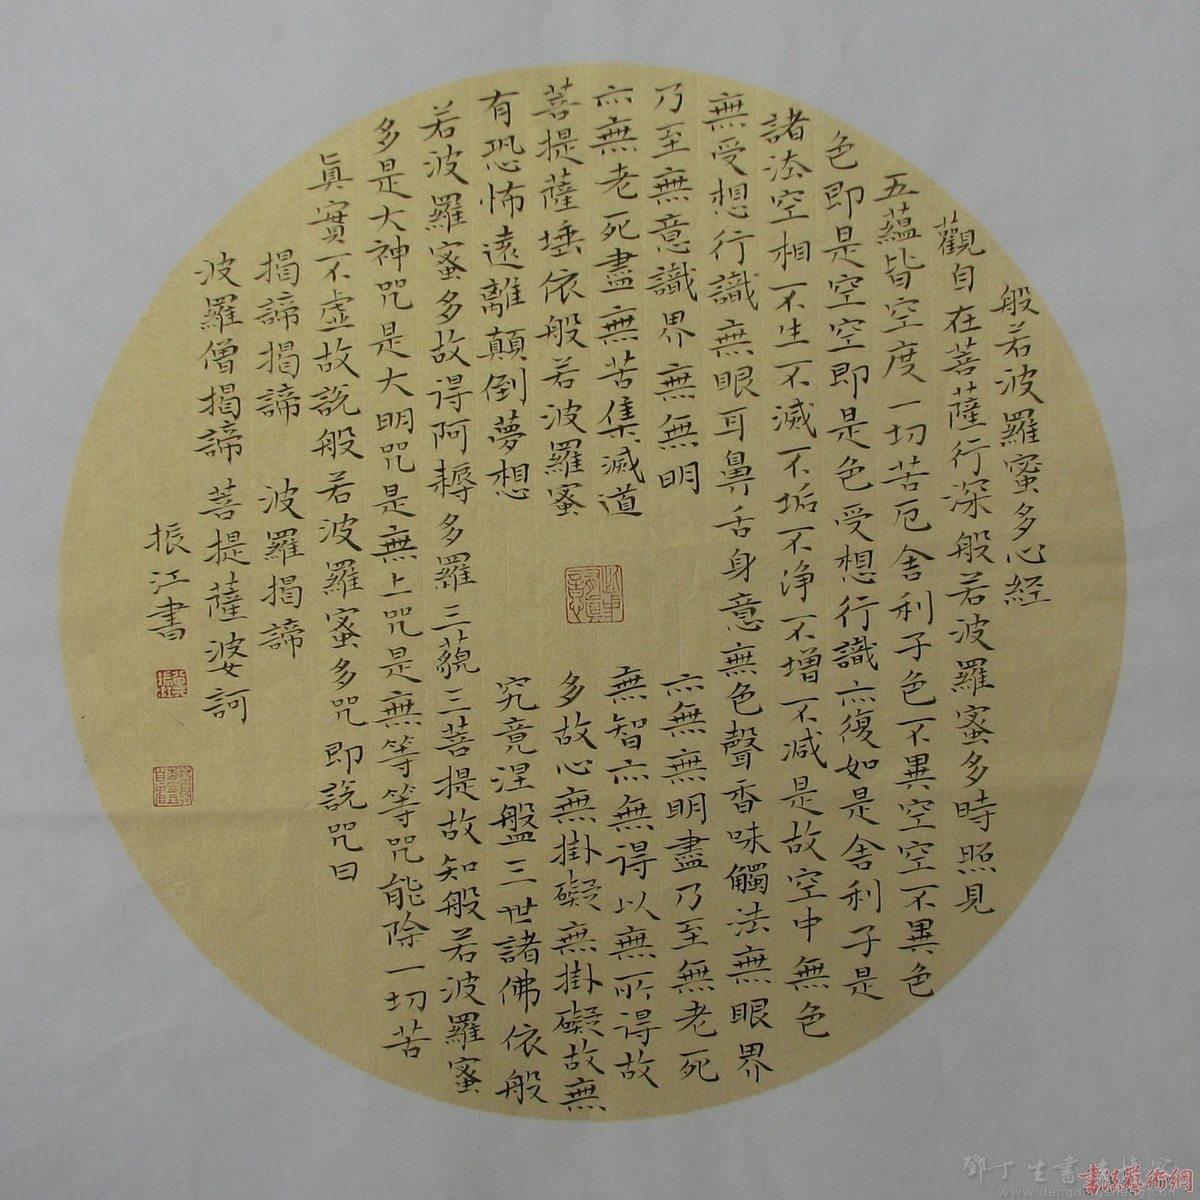 般若波羅蜜多心経
觀自在菩薩行深般若波羅蜜多時照見
五蘊皆空度一切苦厄舍利子色不異空空不異色
色即是空空即是色受想行識亦復如是舍利子是
諸法空相不生不滅不垢不浄不增不减是故空中無色
無受想行識無眼耳鼻舌身意無色聲香味觸法無眼界
乃至無意識界無無明 亦無無明盡乃至無老死
亦無老死盡無苦集滅道 無智亦無得以無所得故
菩提薩埵依般若波羅蜜 多故心無掛礙無掛礙故無
有恐怖遠離顛倒夢想 究竟涅盤三世諸佛依般
若波羅蜜多故得阿耨多羅三藐三菩提故知般若波羅蜜
多是大神咒是大明咒是無上咒是無等等咒能除一切苦
真實不虛故說般若波羅蜜多咒即說咒曰
揭諦揭諦 波羅揭諦
波羅僧揭諦 菩提薩婆訶
振江書
書法藝術網